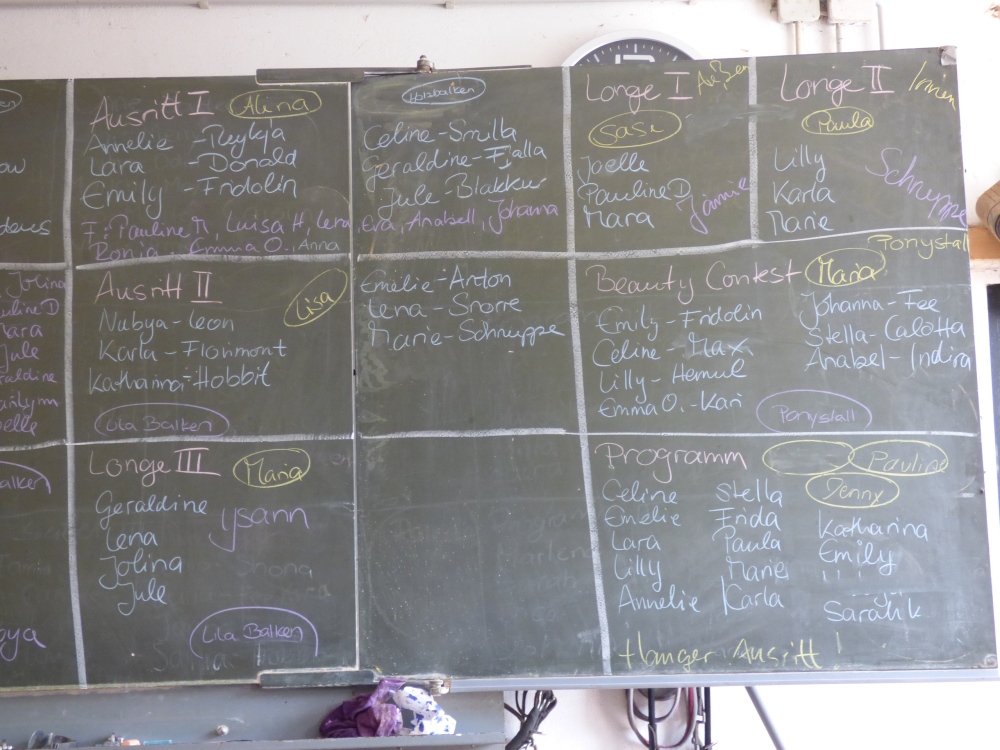 Ausritt I Alina
Annelie - Reykja
Lara - Donald
Emily - Fridolin
F: Pauline M, Luisa H, Lena, Eva, Anabell, Johanna
Ronja Emma O., Anna
Holzbalken
Celine - Smilla
Geraldine - Fjalla
Jule - Blakkur
Longe I Außen
Sasi
Joelle
Pauline D
Mara
Jannie
Longe II Innen
Paula
Lilly
Karla
Marie
Schnuppe
Jolina
uline D
Mara
Jule
raldine
elle
Ausritt II Lisa
Nubya - Leon
Karla - Florimont
Katharina - Hobbit
Lila Balken
Emelie - Anton
Lena - Snorre
Marie - Schnuppe
Beauty Contest Maria Ponystall
Emily - Fridolin
Celine - Max
Lilly - Hemul
Emma O. - Kari
Johanna - Fee
Stella - Calotta
Anabel - Indira
Ponystall
Balken
oya
Longe III Maria
Geraldine
Lena
Jolina
Jule
Ysann
Lila Balken
Programm Pauline
Jenny
Celine
Emelie
Lara
Lilly
Annelie
Stella
Frida
Paula
Marie
Karla
Katharina
Emily
Sarah K
Hänger Ausritt!